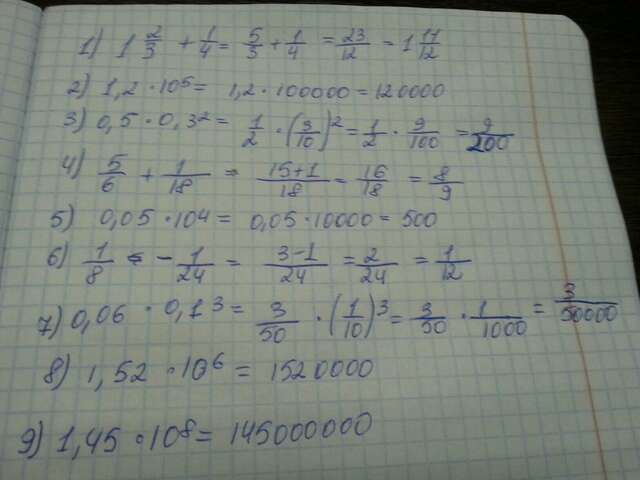 1) 1 2/3 + 1/4 = 5/3 + 1/4 = 23/12 = 1 11/12
2) 1,2 · 10⁵ = 1,2 · 100000 = 120000
3) 0,5 · 0,3² = 1/2 · (3/10)² = 1/2 · 9/100 = 9/200
4) 5/6 + 1/18 = 15+1/18 = 16/18 = 8/9
5) 0,05 · 10⁴ = 0,05 · 10000 = 500
6) 1/8 - 1/24 = 3-1/24 = 2/24 = 1/12
7) 0,06 · 0,1³ = 3/50 · (1/10)³ = 3/50 · 1/1000 = 3/50000
8) 1,52 · 10⁶ = 1520000
9) 1,45 · 10⁸ = 145000000